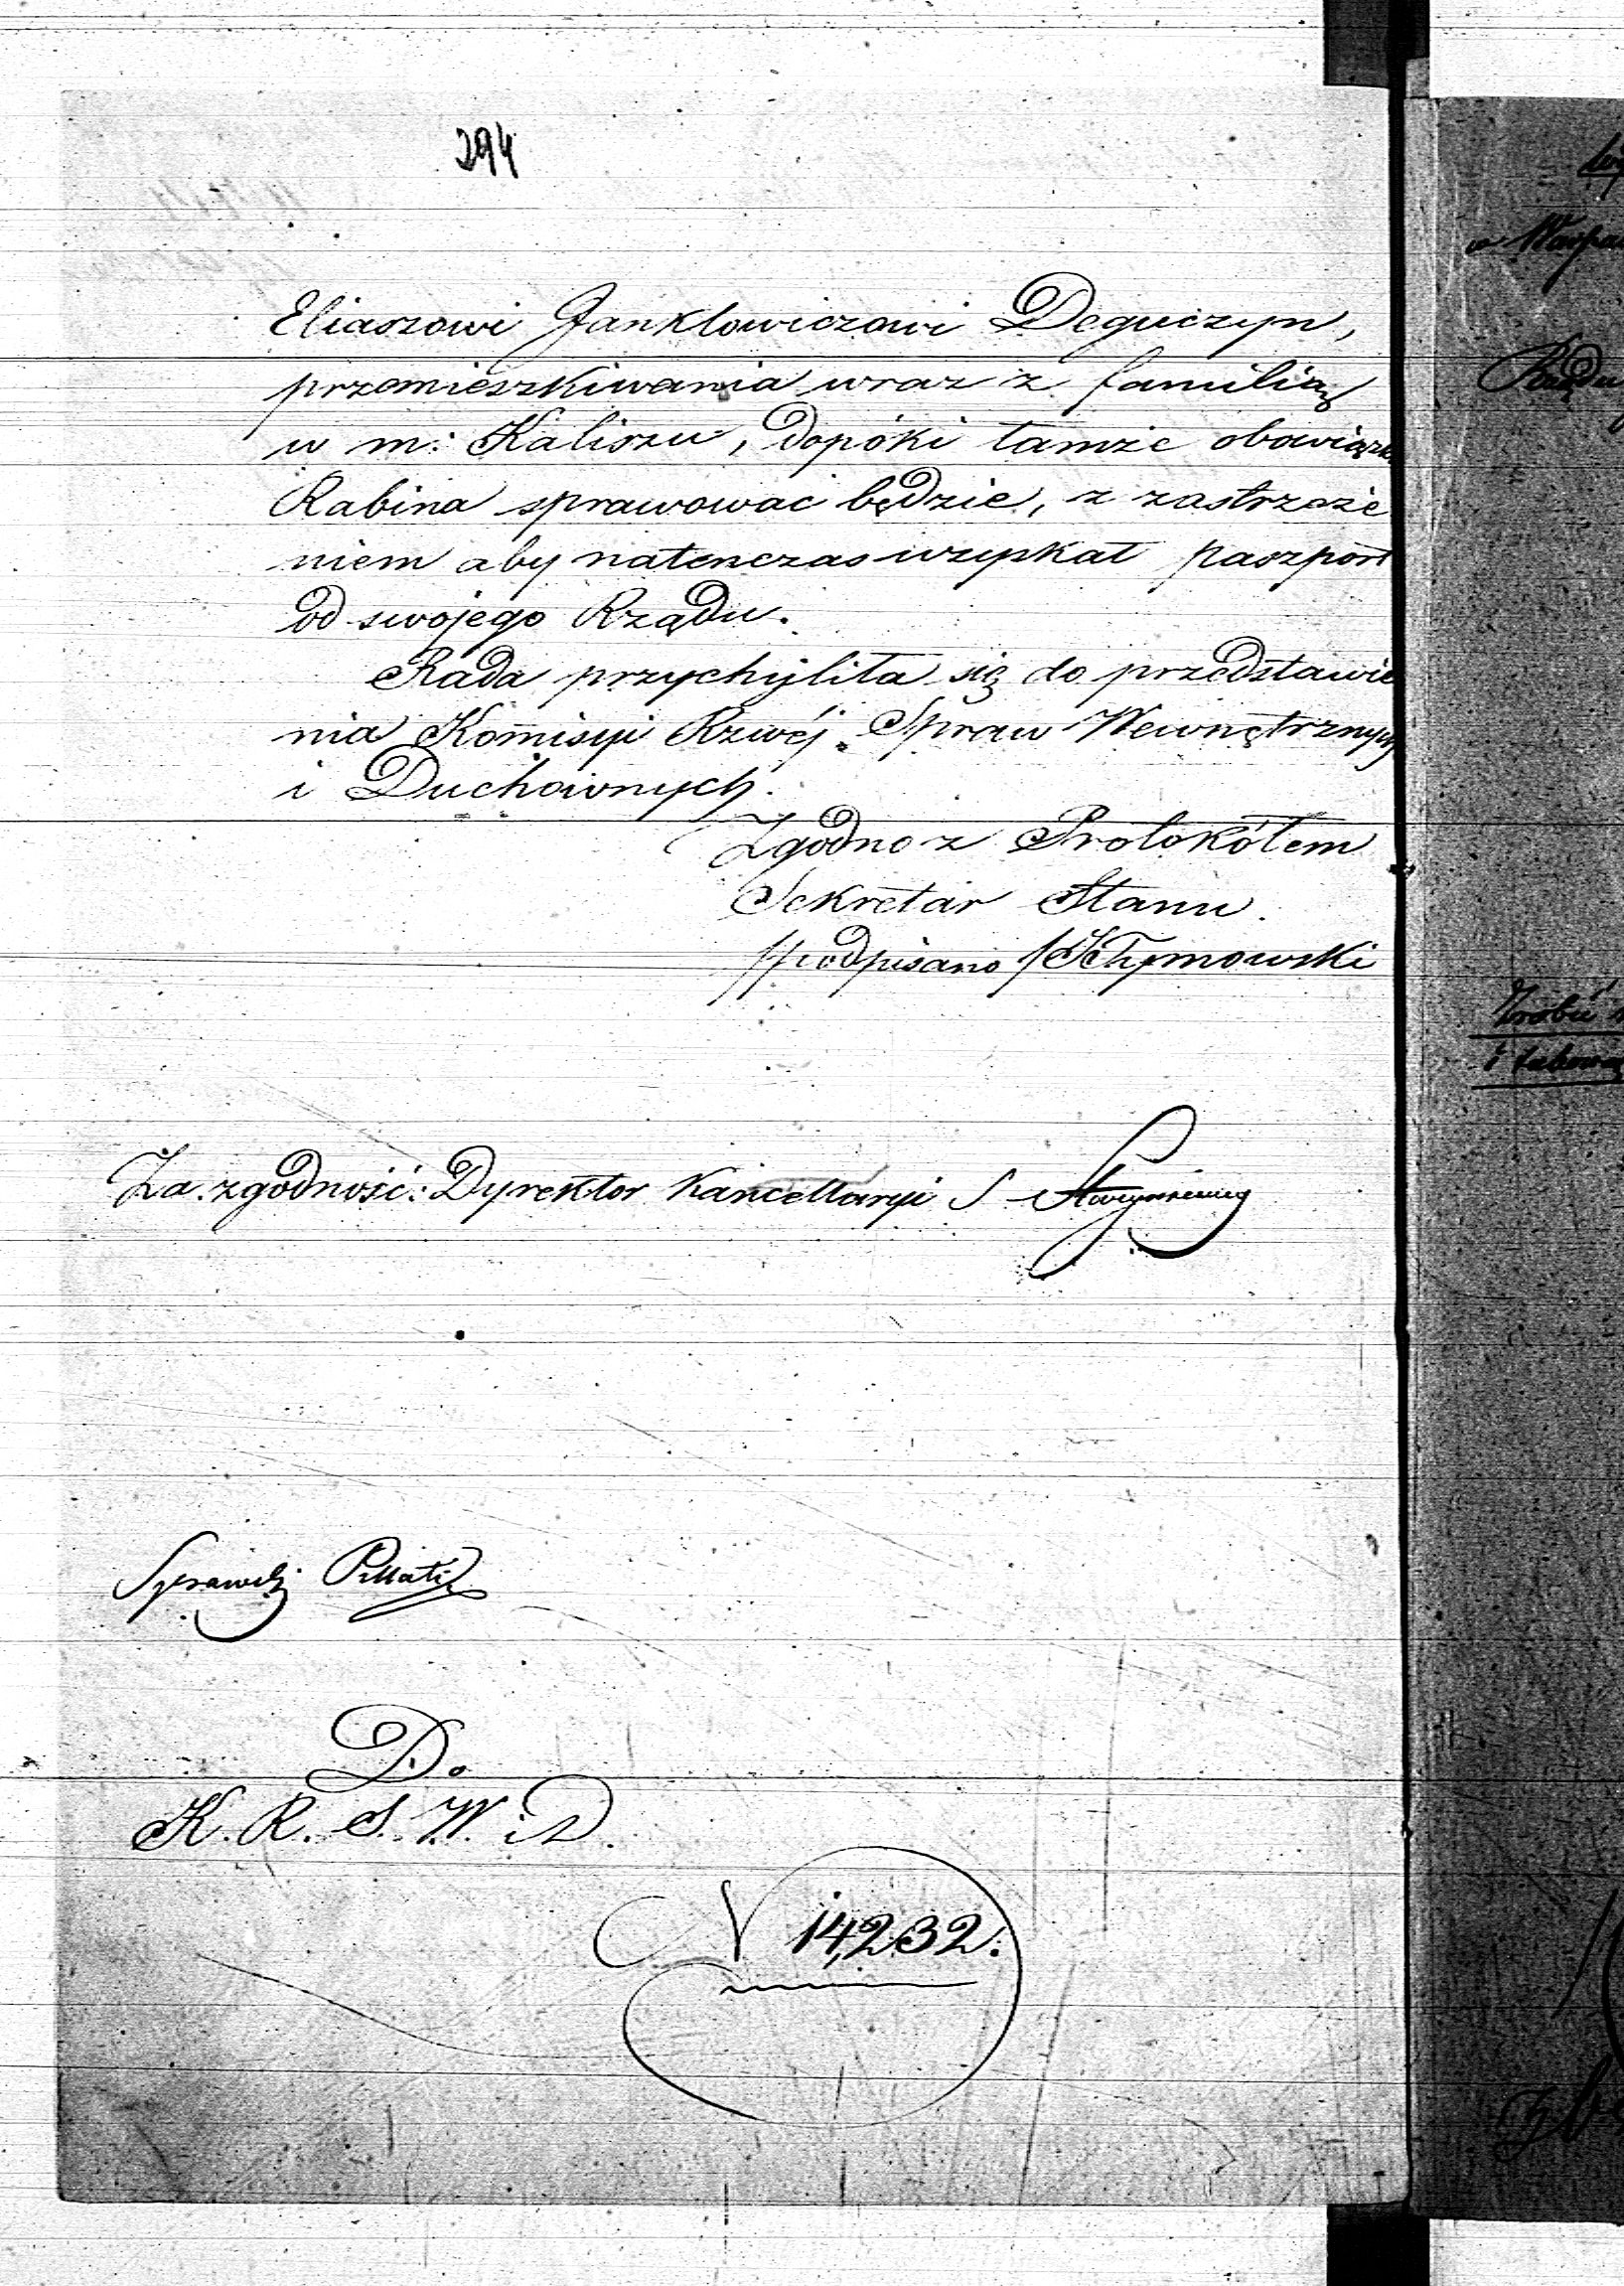 294
Eliaszowi Janklowiczowi Deguczyn,
przemieszkiwania wraz z familią
w m: Kaliszu, dopóki tamże obowiązki
Rabina sprawować będzie, z zastrzeże
niem aby natenczas uzyskał paszport
od swojego Rządu.
Rada przychyliła się do przedstawie
nia Komisyi Rzwéj Spraw Wewnętrznych
i Duchownych.
Zgodno z Protokółem
Sekretar Stanu.
/podpisano/ Tymowski
Za zgodność: Dyrektor Kancellaryi
Do
K. R. S. W. i D.
N 14,232.